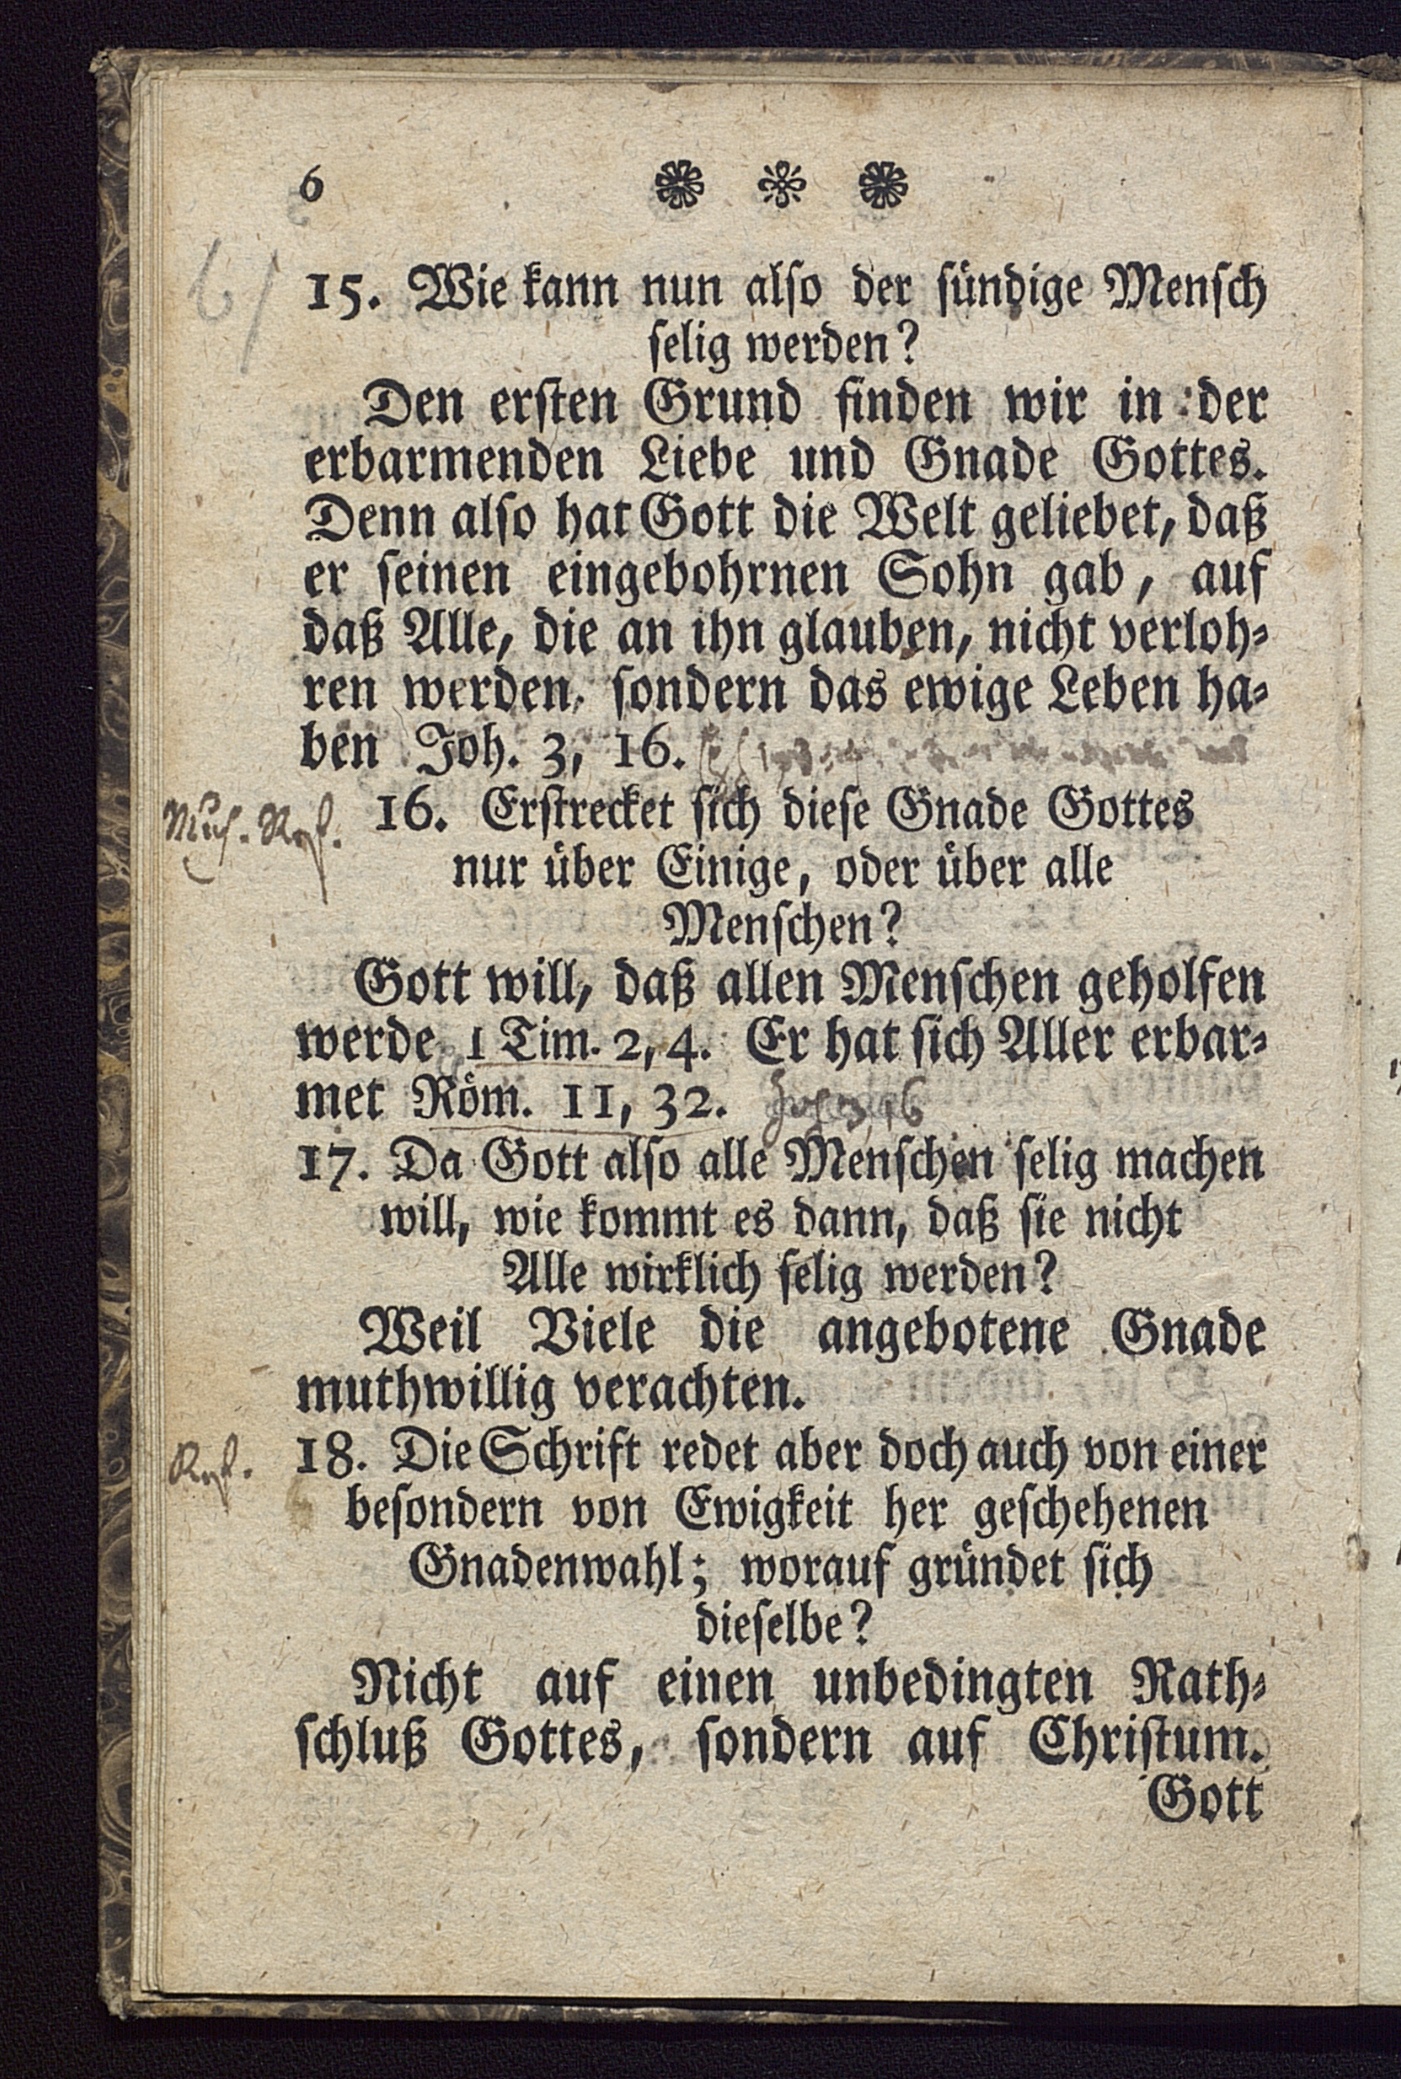 6
15. Wie kann nun also der ſündige Menſch
ſelig werden?
Den erſten Grund finden wir in der
erbarmenden Liebe und Gnade Gottes.
Denn alſo hat Gott die Welt geliebet, daß
er ſeinen eingebohrnen Sohn gab, auf
daß Alle, die an ihn glauben, nicht verloh⸗
ren werden, ſondern das ewige Leben ha⸗
ben Joh. 3, 16.
16. Erſtrecket ſich dieſe Gnade Gottes
nur über Einige, oder über alle
Menſchen?
Gott will, daß allen Menſchen geholfen
werde 1 Tim. 2, 4. Er hat ſich Aller erbar⸗
met Röm. 11, 32.
17. Da Gott alſo alle Menſchen ſelig machen
will, wie kommt es dann, daß ſie nicht
Alle wirklich ſelig werden?
Weil Viele die angebotene Gnade
muthwillig verachten.
18. Die Schrift redet aber doch auch von einer
beſondern von Ewigkeit her geſchehenen
Gnadenwahl; worauf gründet ſich
dieſelbe?
Nicht auf einen unbedingten Rath⸗
ſchluß Gottes, ſondern auf Chriſtum.
Gott